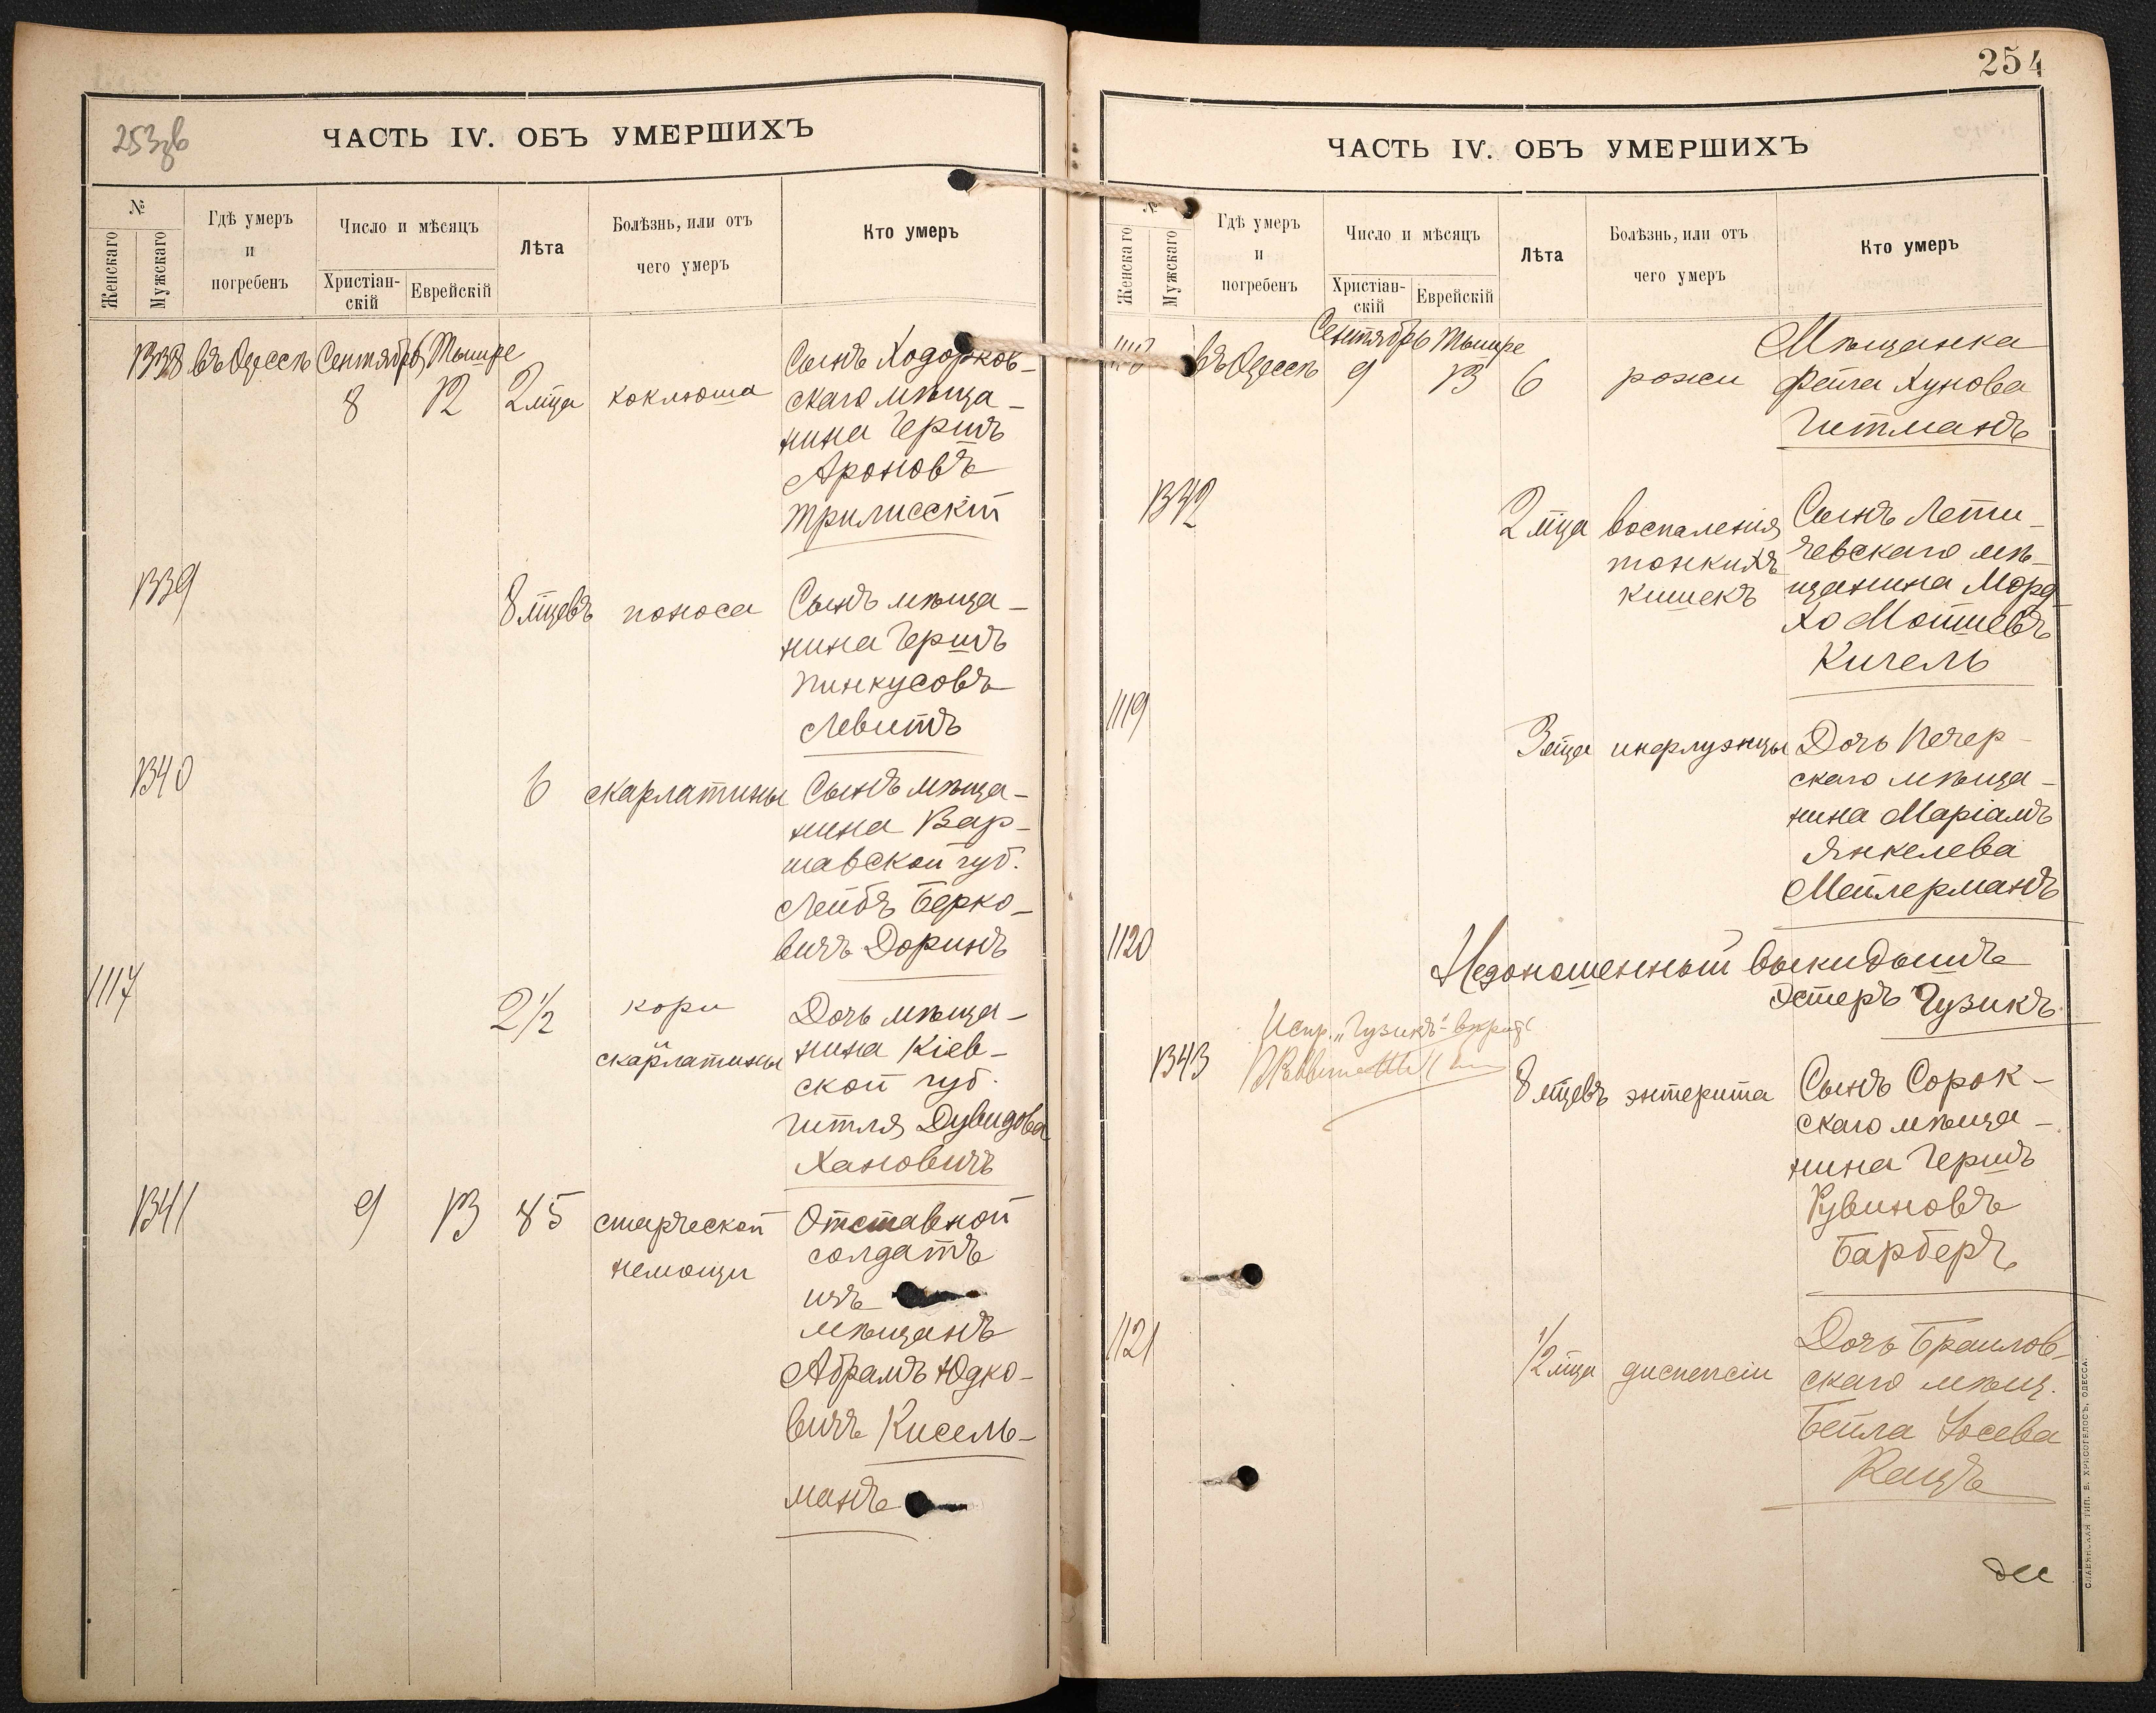 253об
ЧАСТЬ IV. ОБЪ УМЕРШИХЪ
№
Женскаго
Мужскаго
Гдѣ умеръ
и
погребенъ
Число и мѣсяцъ
Христіан-
скій
Еврейскій
Лѣта
Болѣзнь, или отъ
чего умеръ
Кто умеръ
1338 въ Одессѣ Сентябрь Тишре
8 12 2 мца коклюша
Сынъ Ходорков-
скаго мѣща-
нина Гершъ
Ароновъ
Трилисскій
1339 8 мцевъ поноса
Сынъ мѣща-
нина Гершъ
Пинкусовъ
Левитъ
1340 6 скарлатины
Сынъ мѣща-
нина Вар-
шавской губ.
Лейбъ Берко-
вичъ Доринъ
1117 2 1/2 кори
и
скарлатины
Дочь мѣща-
нина Кіев-
ской губ.
Гитля Дувидова
Хановичъ
1341 9 13 85 старческой
немощи
Отставной
солдатъ
изъ
мѣщанъ
Абрамъ Юдко-
вичъ Кисель-
манъ
254
ЧАСТЬ IV. ОБЪ УМЕРШИХЪ
№
Женскаго
Мужскаго
Гдѣ умеръ
и
погребенъ
Число и мѣсяцъ
Христіан-
скій
Еврейскій
Лѣта
Болѣзнь, или отъ
чего умеръ
Кто умеръ
1118 въ Одессѣ Сентябрь Тишре
9 13 6 рожи
Мѣщанка
Фейга Хунова
Гитманъ
1342 2 мца воспаленія
тонкихъ
кишекъ
Сынъ Лети-
чевскаго мѣ-
щанина Морд
хо Мошевъ
Кигель
1119 3 мца инфлуэнцы
Дочь Печер-
скаго мѣща-
нина Маріамъ
Янкелева
Мейлерманъ
1120 Недоношенный выкидышъ
Эстеръ Гузикъ
Испр. "Гузикъ" вѣрить
1343 8 мцевъ энтерита
Сынъ Сорок-
скаго мѣща-
нина Гершъ
Рувиновъ
Барберъ
1121 1/2 мца диспепсіи
Дочь Браилов-
скаго мѣщ.
Бейла Іосева
Кацъ
СЛАВЯНСКАЯ ТИП. Е. ХРИСОГЕЛОСЪ, ОДЕССА.